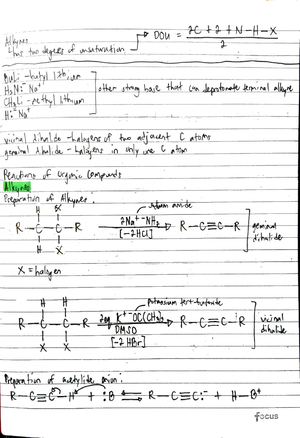 Alkynes
↳ has two degrees of unsaturation → DOU = 2C + 2 + N - H - X
2
BuLi - butyl lithium
H₂N:⁻ Na⁺
CH₃Li - methyl lithium
H:⁻ Na⁺
other strong base that can deprotonate terminal alkyne
vicinal dihalide - halogens of two adjacent C atoms
geminal dihalide - halogens in only one C atom
Reactions of Organic Compounds
Alkynes
Preparation of Alkynes:
H X
R - C - C - R
H X
sodium amide
2Na⁺ ⁻NH₂
[-2HCl]
R - C≡C - R
geminal dihalide
X = halogen
H H
R - C - C - R
X X
potassium tert-butoxide
2eq. K⁺ ⁻OC(CH₃)₃
DMSO
[-2 HBr]
R - C≡C - R
vicinal dihalide
Preparation of acetylide anion:
R - C≡C - H + :B ⇌ R - C≡C:⁻ + H - B⁺
focus